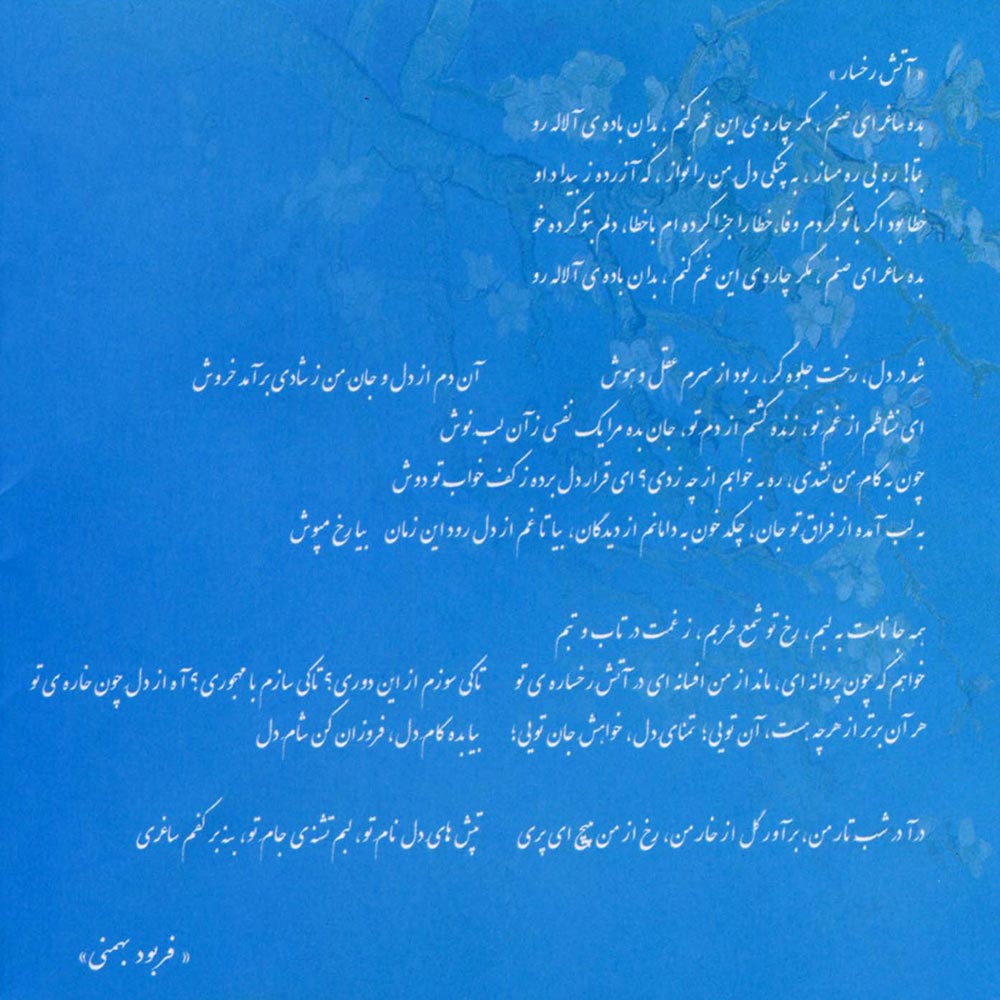 «آتش رخسار»
بده ساغر ای صنم، مگر چاره ی این غم کنم، بدان باده ی آلاله رو
بتا! ره بی ره مساز، به چنگی دل من را نواز، که آزرده ز بیداد او
خطا بود اگر با تو کردم وفا، خطا را جزا کرده ام با خطا، دلم بتو کرده خو
بده ساغر ای صنم، مگر چاره ی این غم کنم، بدان باده ی آلاله رو
شد در دل، رخت جلوه گر، ربود از سرم عقل و هوش آن دم از دل و جان من ز شادی برآمد خروش
ای نشاطم از غم تو، زنده گشتم از دم تو، جان بده مرا یک نفسی ز آن لب نوش
چون به کام من نشدی، ره به خوابم از چه زدی؟ ای قرار دل برده ز کف خواب تو دوش
به لب آمده از فراق تو جان، چکد خون به دامانم از دیدگان، بیا تا غم از دل رود این زمان بیا رخ مپوش
همه جا نامت به لبم، رخ تو شمع طربم، ز غمت در تاب و تبم
خواهم که چون پروانه ای، ماند از من افسانه ای در آتش رخساره ی تو تا کی سوزم از این دوری؟ تا کی سازم با مهجوری؟ آه از دل چون خاره ی تو
هر آن برتر از هرچه هست، آن تویی؛ تمنای دل، خواهش جان تویی؛ بیا بده کام دل، فروزان کن شام دل
درآ در شب تار من، برآور گل از خار من، رخ از من مپیچ ای پری تپش های دل نام تو، لبم تشنه ی جام تو، بنه بر کفم ساغری
«فربود بهمنی»